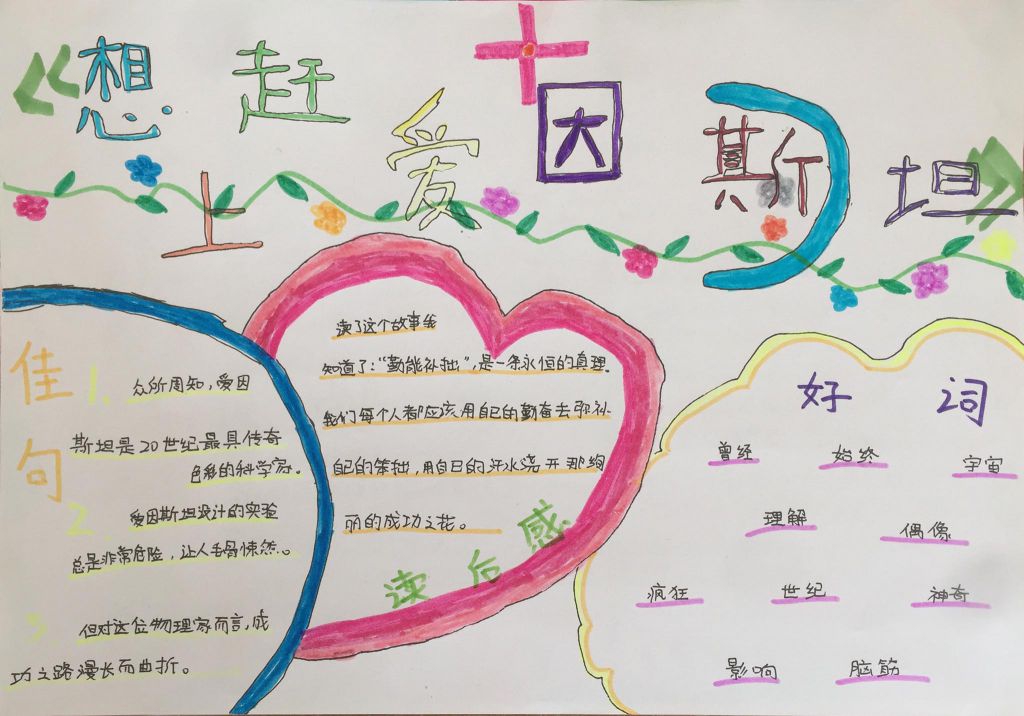 《想赶上爱因斯坦》
佳句
1. 众所周知,爱因
斯坦是20世纪最具传奇
色彩的科学家。
2. 爱因斯坦设计的实验
总是非常危险,让人毛骨悚然。
3 但对这位物理家而言,成
功之路漫长而曲折。
读了这个故事我
知道了:“勤能补拙”,是一条永恒的真理。
我们每个人都应该用自己的勤奋去弥补
自己的笨拙,用自己的汗水浇开那绚
丽的成功之花。
读后感
好词
曾经 始终 宇宙
理解 偶像
疯狂 世纪 神奇
影响 脑筋